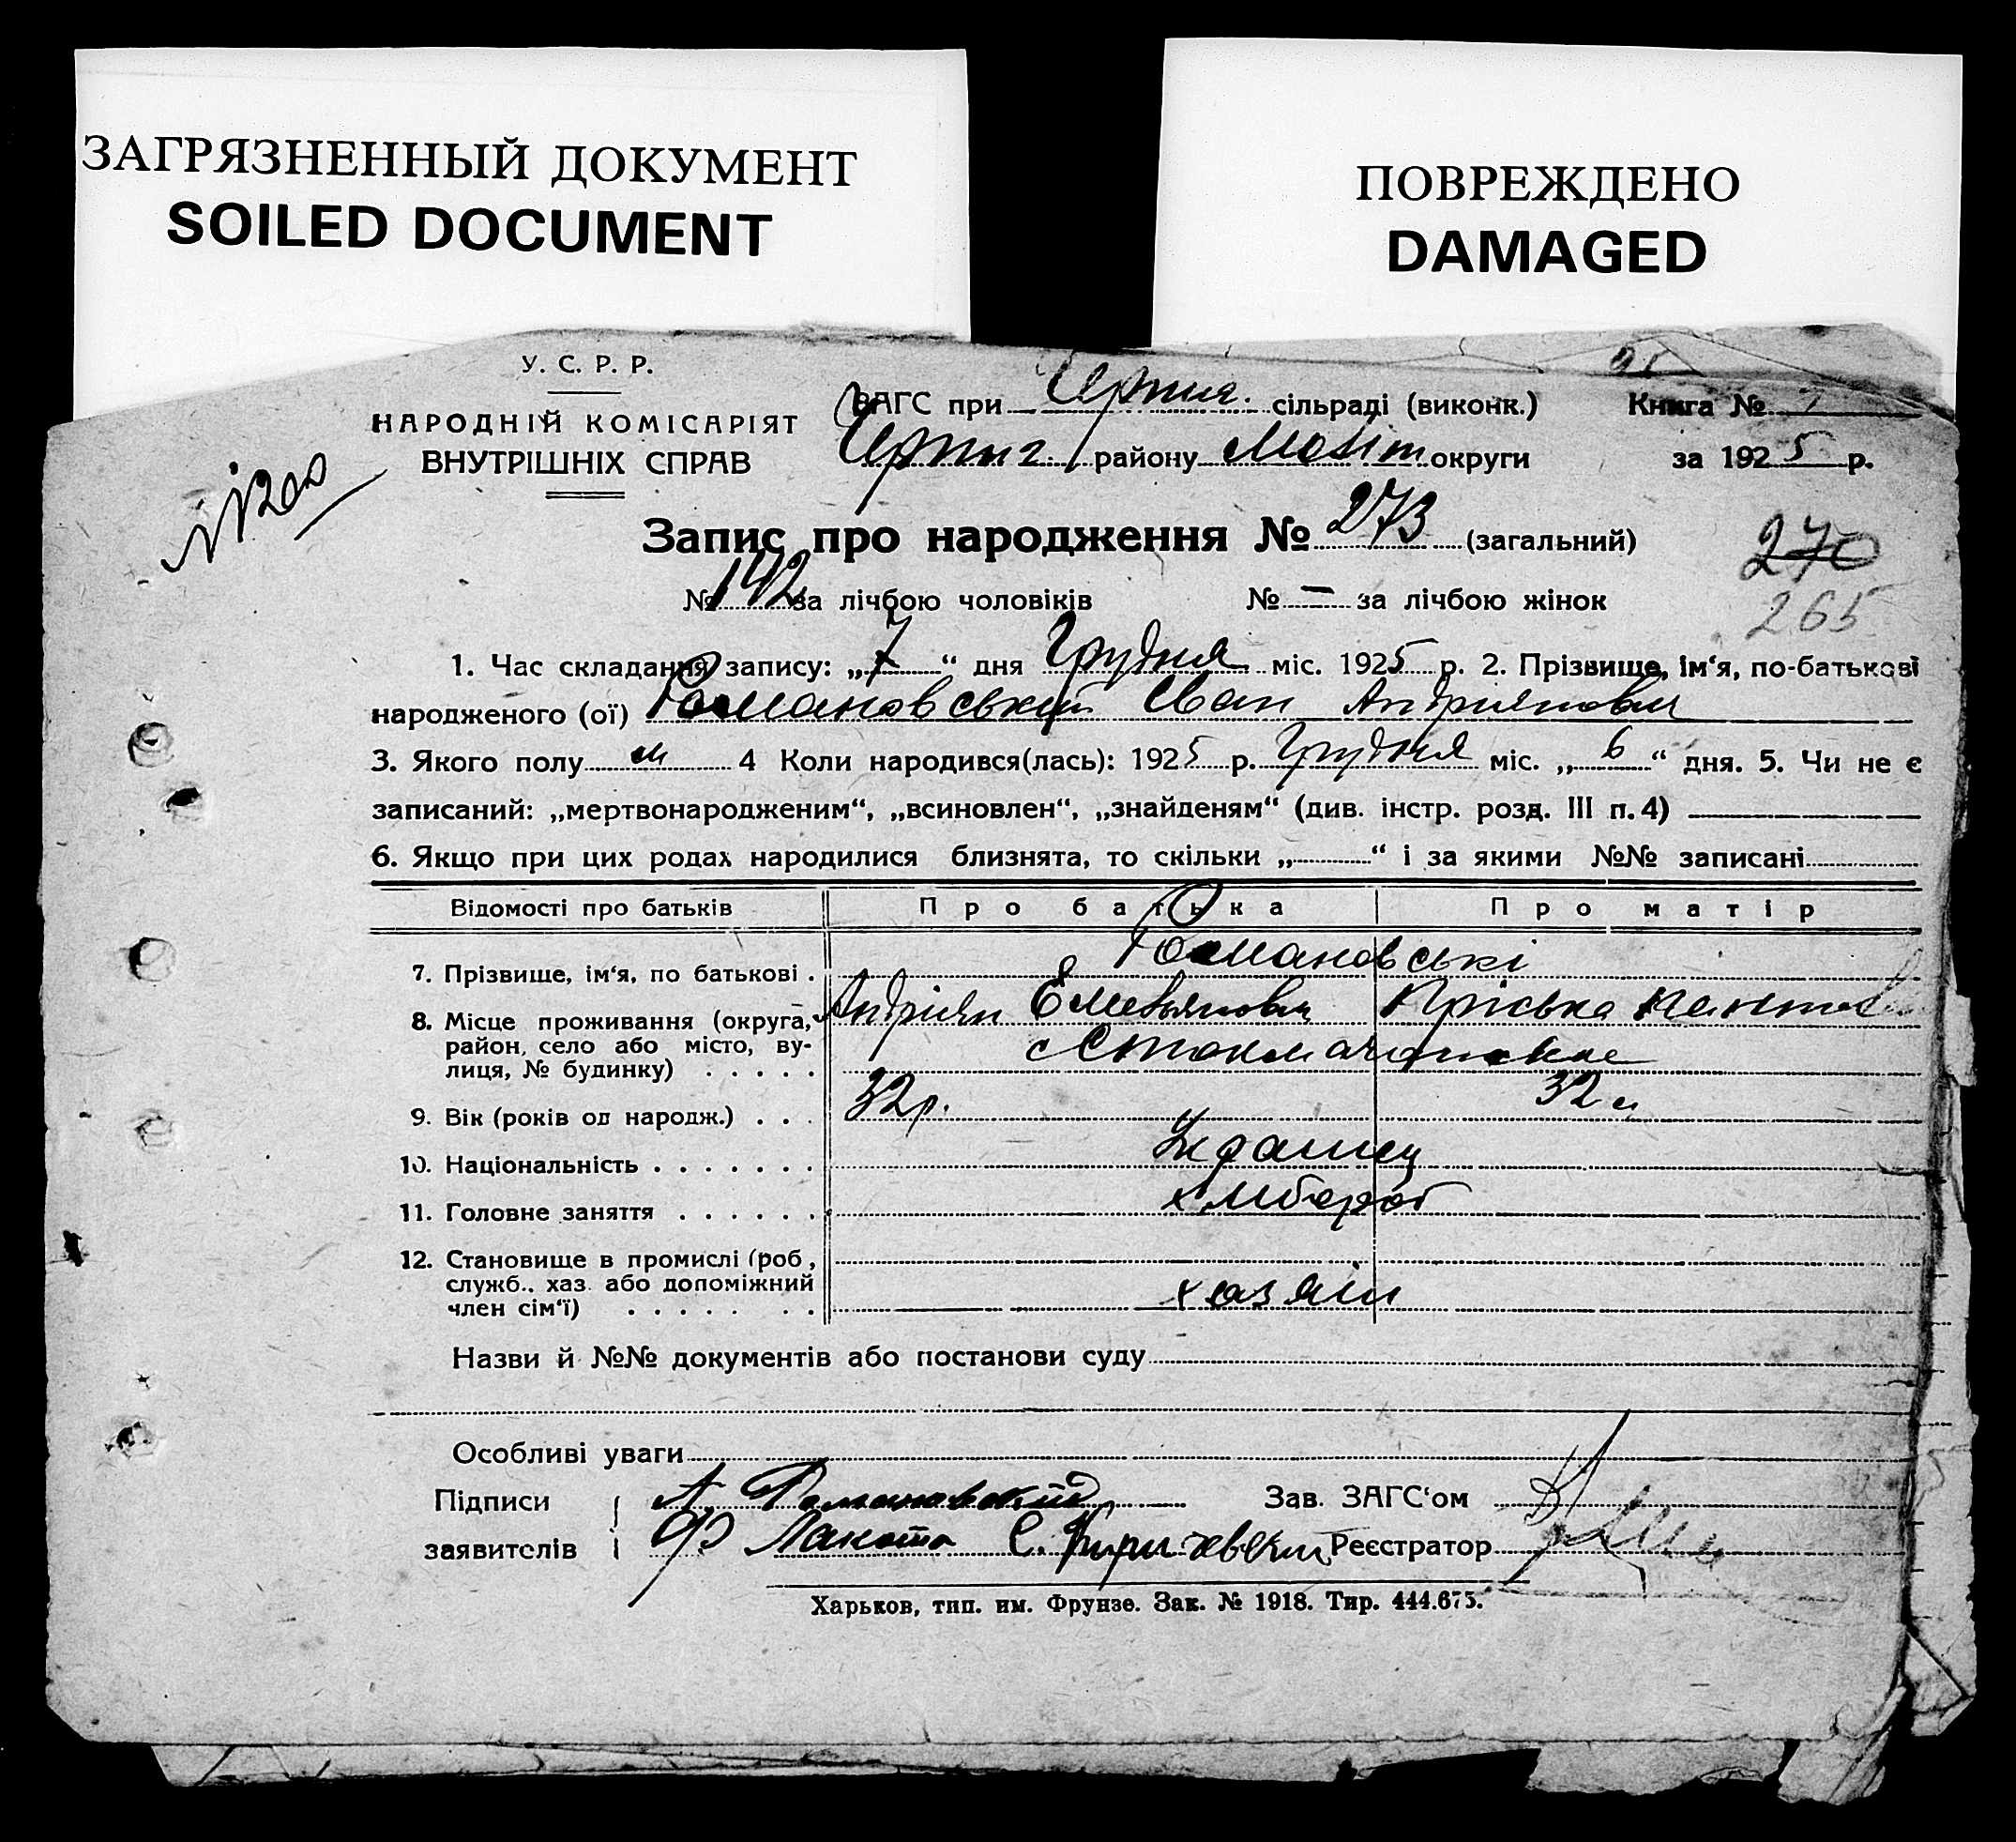 ЗАГРЯЗНЕННЫЙ ДОКУМЕНТ
SOILED DOCUMENT
ПОВРЕЖДЕНО
DAMAGED
У. С. Р. Р.
НАРОДНІЙ КОМІСАРІЯТ
ВНУТРІШНІХ СПРАВ
ЗАГС при сільраді (виконк.) Книга №
району округи за 1925 р.
Запис про народження № 273 (загальний)
270
№ 142 за лічбою чоловіків № — за лічбою жінок
265
1. Час складання запису: „7“ дня Грудня міс. 1925 р. 2. Прізвище, ім‘я, по-батькові
народженого (ої) Романовський Іван Андріянович
3. Якого полу м 4 Коли народився(лась): 1925 р. Грудня міс. „6“ дня. 5. Чи не є
записаний: „мертвонародженим“, „всиновлен“, „знайденям“ (див. інстр. розд. III п. 4)
6. Якщо при цих родах народилися близнята, то скільки „ “ і за якими №№ записані
Відомості про батьків Про батька Про матір
7. Прізвище, ім‘я, по батькові . Романовські
Андріян Емельянович Пріська
8. Місце проживання (округа, район, село або місто, ву-
лиця, № будинку) . . . . .
9. Вік (років од народж.) . . . 32 р. 32
10. Національність . . . . . . .
11. Головне заняття . . . . . . хлібороб
12. Становище в промислі (роб,
служб.. хаз. або допоміжний
член сім‘ї) . . . . . . . хазяїн
Назви й №№ документів або постанови суду
Особливі уваги
Підписи А. Романовский Зав. ЗАГС‘ом
заявителів Ф Лакота С. Реєстратор
Харьков, тип. им. Фрунзе. Зак. № 1918. Тир. 444.675.